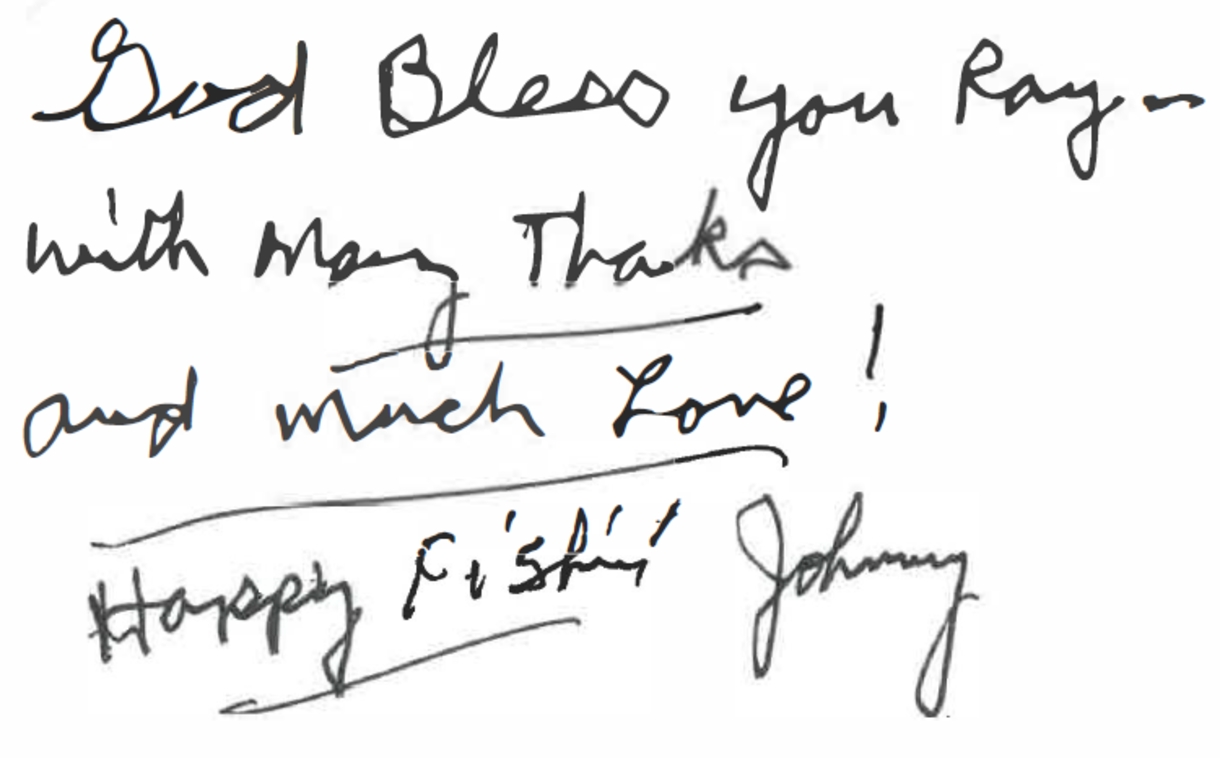 God Bless you Ray-
with Many Thaks
and much Love!
Happy Fishin' Johnny